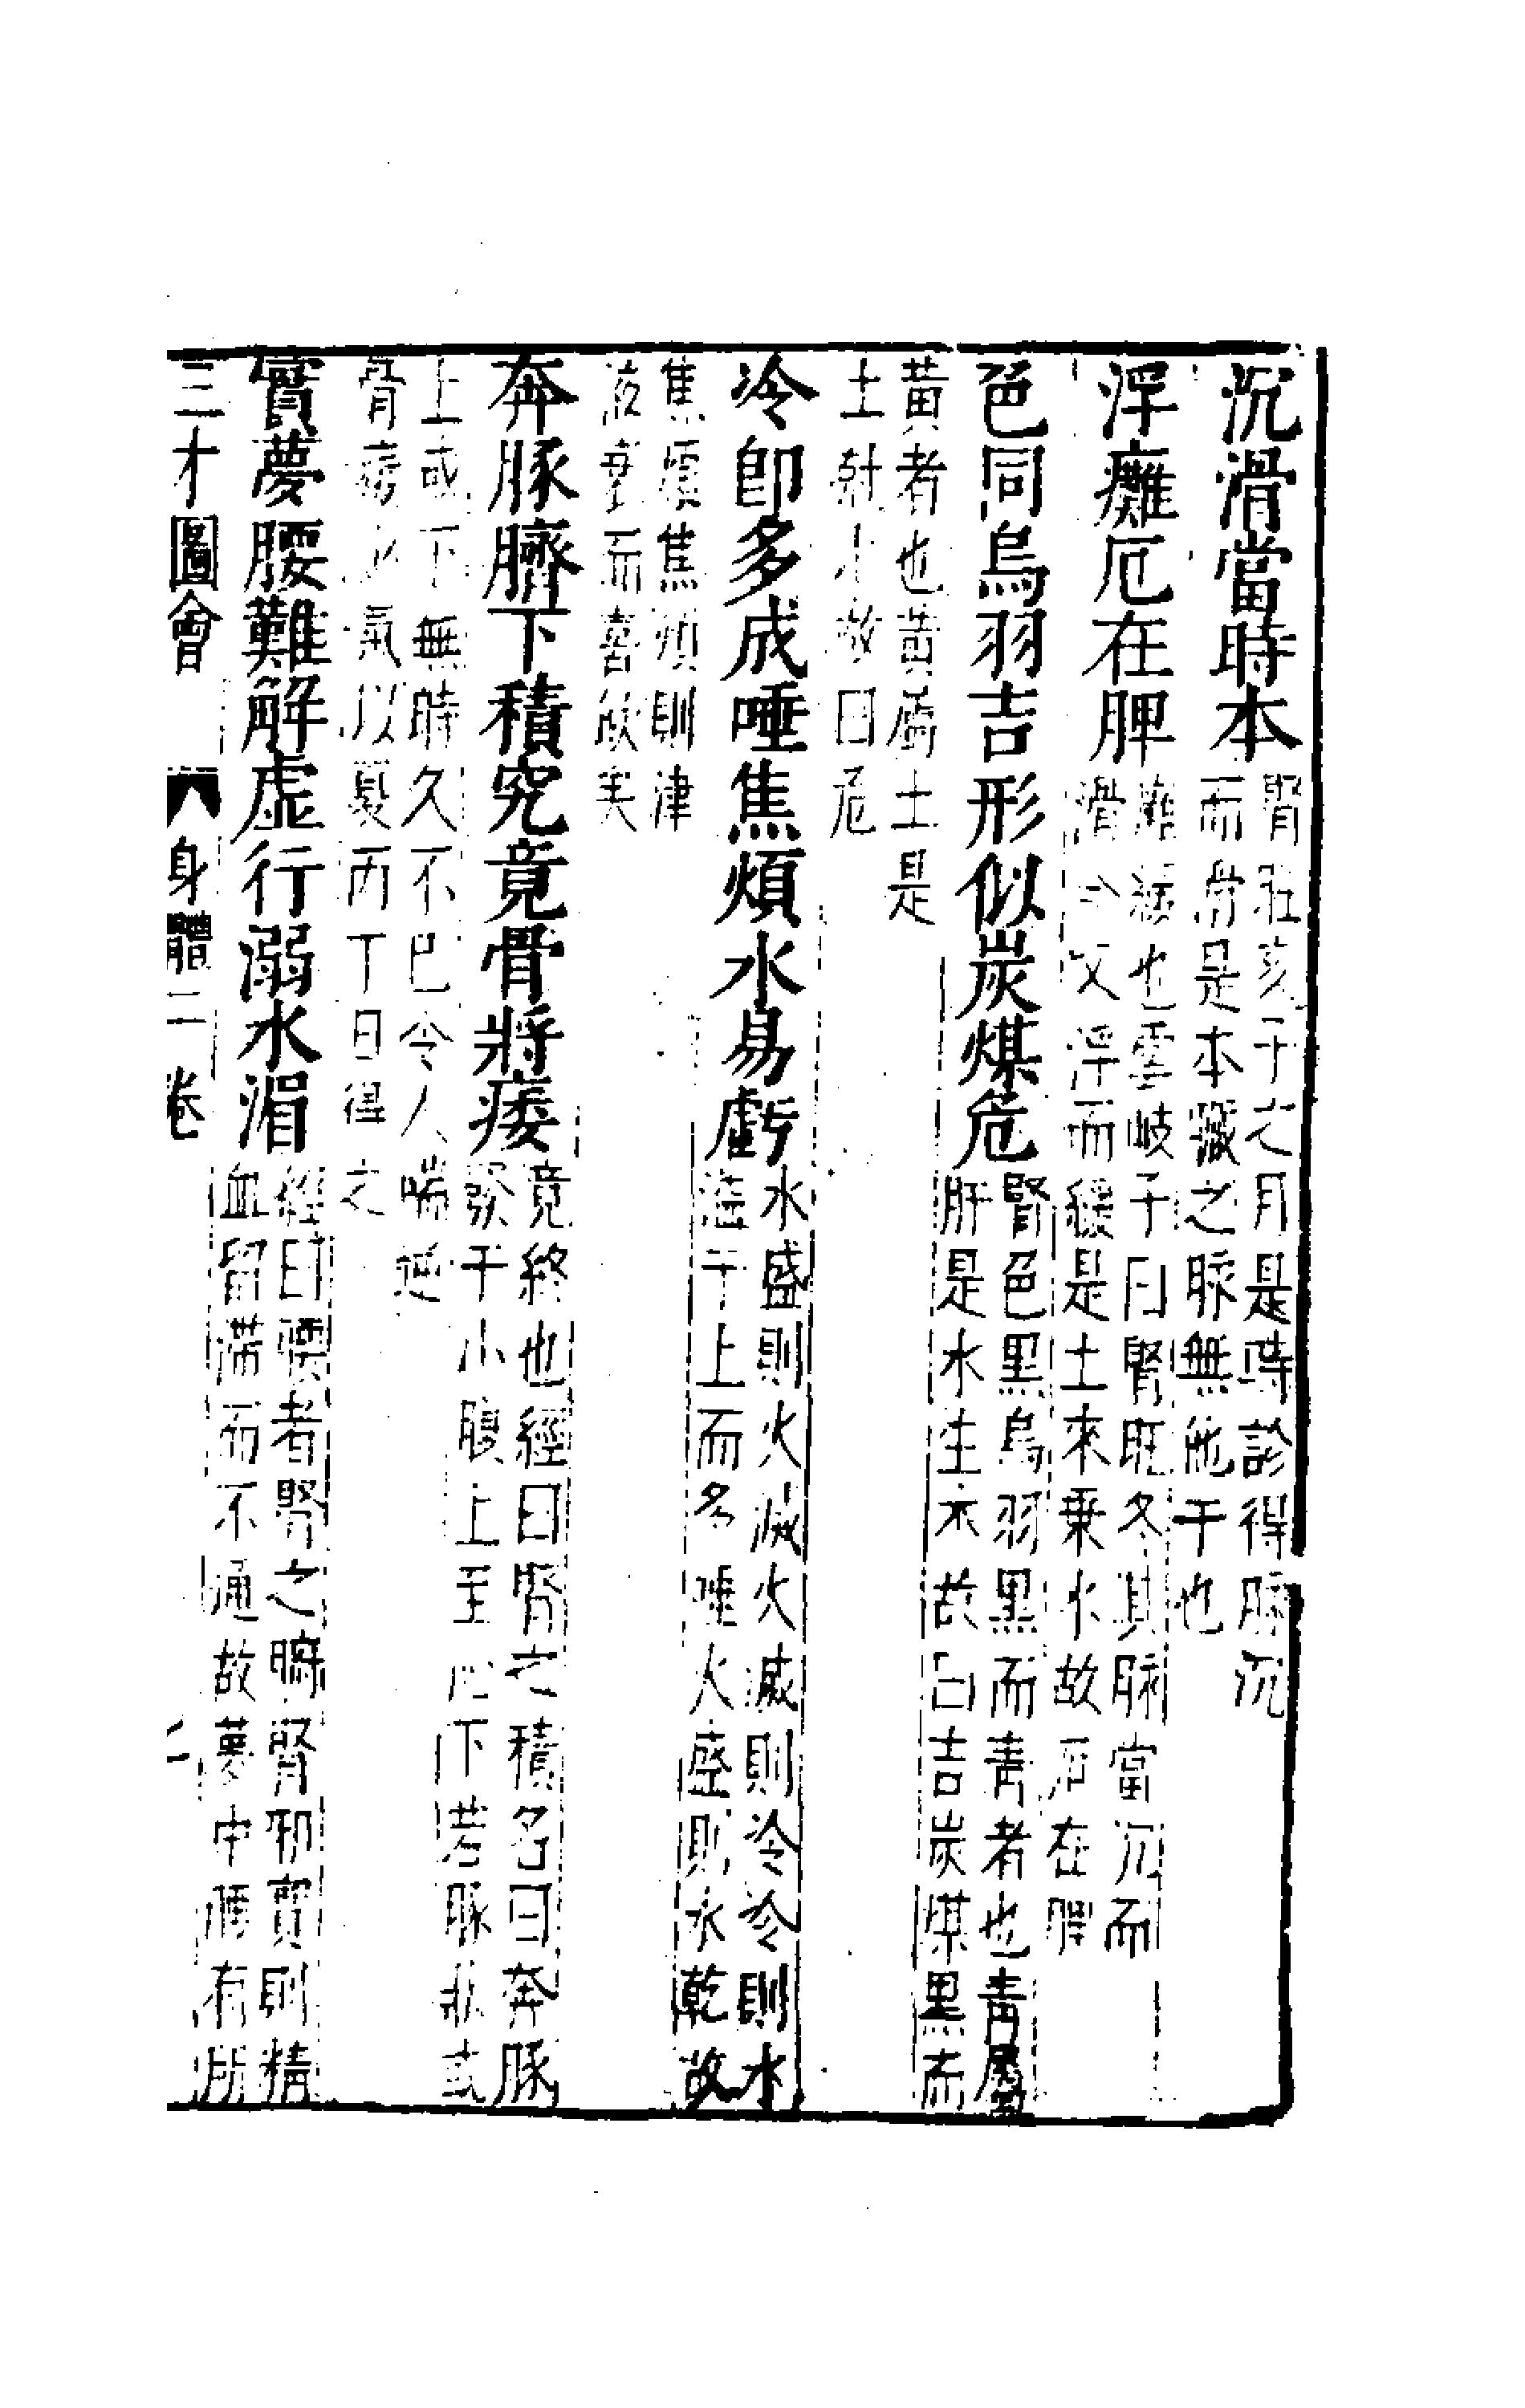 沉滑當時本腎旺亥子之月是時診得脉沉
而滑是本臟之脉無他干也
浮癱厄在脾癱緩也雲岐子曰腎旺冬其脉當沉而
滑今反浮而緩是土來乗水故厄在脾
色同烏羽吉形似炭煤危腎色黒烏羽黒而青者也青屬
肝是水生木故曰吉炭煤黒而
黃者也黃屬土是
土尅水故曰危
冷卽多成唾焦煩水易虧水盛則火滅火滅則冷冷則水
溢于上而多唾火盛則水乾故
焦煩焦煩則津
液衰而喜飲矣
奔豚臍下積究竟骨將痿竟終也經曰腎之積名曰奔豚
發于小腹上至心下若豚狀或
上或下無時久不已令人喘逆
骨痿少氣以夏丙丁日得之
實夢腰難解虛行溺水湄經曰腰者腎之腑腎邪實則精
血留滯而不通故夢中腰有所
三才圖會 身體二卷